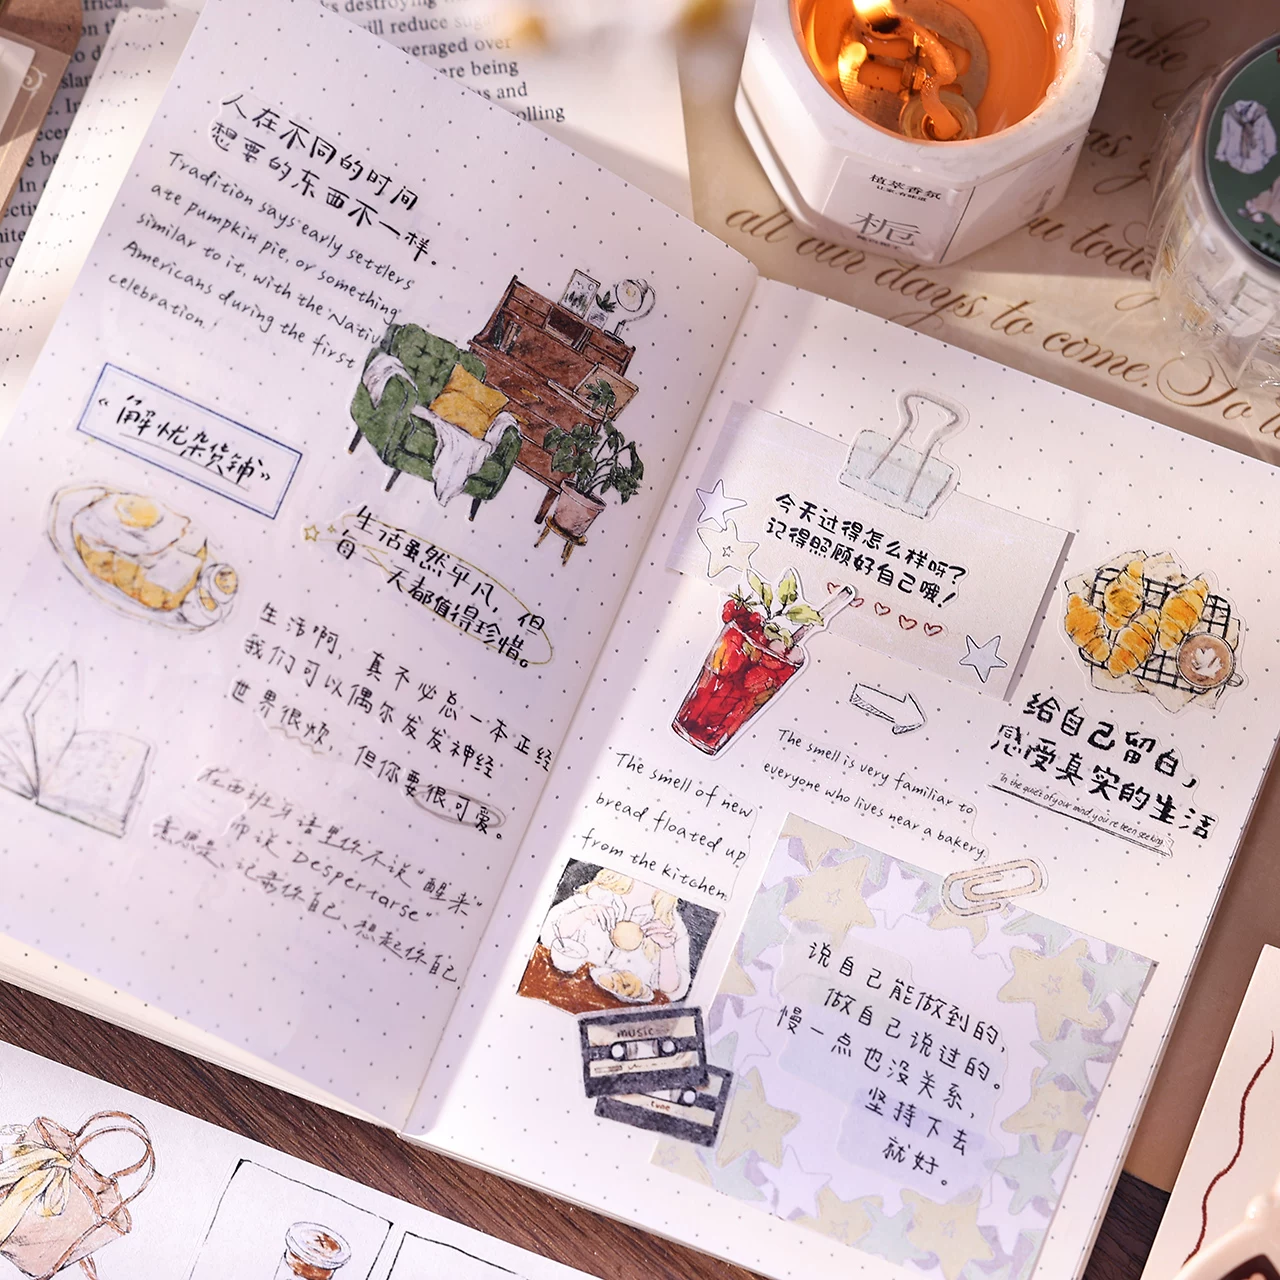 人在不同的时间
想要的东西不一样。
Tradition says early settlers
ate pumpkin pie, or something
similar to it, with the Nativ
Americans during the first
celebration.
《解忧杂货铺》
生活虽然平凡，但
每一天都值得珍惜。
生活啊，真不必总一本正经
我们可以偶尔发发神经
世界很烦，但你要很可爱。
在西班牙语里你不说“醒来”
而说“Despertarse”
意思是“记录你自己、想起你自己
今天过得怎么样呀？
记得照顾好自己哦！
给自己留白，
感受真实的生活
In the quiet of your mind, you've been seeking
The smell is very familiar to
everyone who lives near a bakery.
The smell of new
bread floated up
from the kitchen.
music
type
说自己能做到的，
做自己说过的。
慢一点也没关系，
坚持下去
就好。
植萃香氛
栀
take
as
all our days to come. So
you today
frica.
ks destroying
ill reduce suga
veraged over
ere being
s and
olling